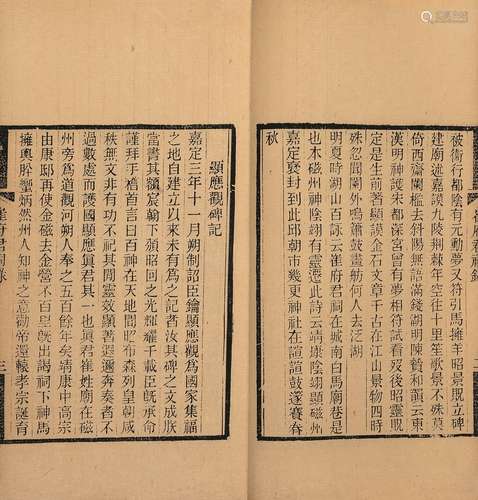 被衛行都陰有元動夢又符引馬擁羊昭景既立碑
建廟述嘉謨九陵荆棘年空住十里笙歌景不殊莫
倚西齋闌檻去斜陽無語滿錢湖明陳贄和韻云東
漢明神護宋都深宮曾有夢相符歲時致祭昭靈貺
定是生前著顯謨金石文章千古在江山景物四時
殊忽聞閣外鳴簫鼓畫舫何人去泛湖
明夏時湖山百詠云崔府君祠在城南白馬廟巷是
也本磁州神陰翊有靈遷此詩云靖康陰翊顯磁州
嘉定褒封到此邱朝市幾更神社在喧喧鼓篴賽春
秋
顯應觀碑記
嘉定三年十一月朔制詔臣鑰顯應觀爲國家集福
之地自建立以來未有爲之記者汝其碑之文成朕
當書其額宸翰下頒昭回之光輝耀千載臣旣承命
謹拜手稽首言曰百神在天地間昭布森列皇朝咸
秩無文非有功不祀其間靈效顯著遐邇奔奏者不
過數處而護國顯應眞君其一也眞君崔姓廟在磁
州旁爲道觀河朔人奉之五百餘年矣靖康中高宗
由康邸再使金磁去金營不百里旣出謁祠下神馬
擁輿肸蠁炳然州人知神之意勸帝還轅孝宗誕育
崔府君祠錄
三